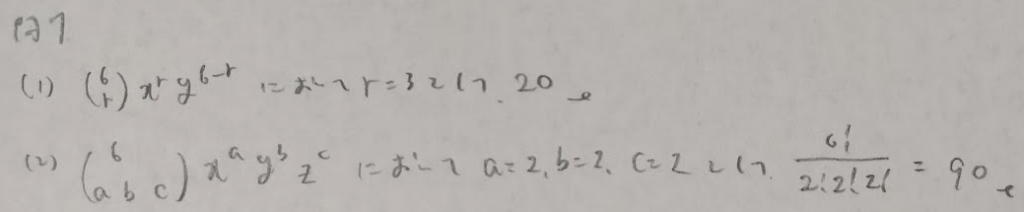 問1
(1) (6 r) x^r y^{6-r} において r=3として. 20
(2) (6 a b c) x^a y^b z^c において a=2, b=2, c=2として. 6!/2!2!2! = 90